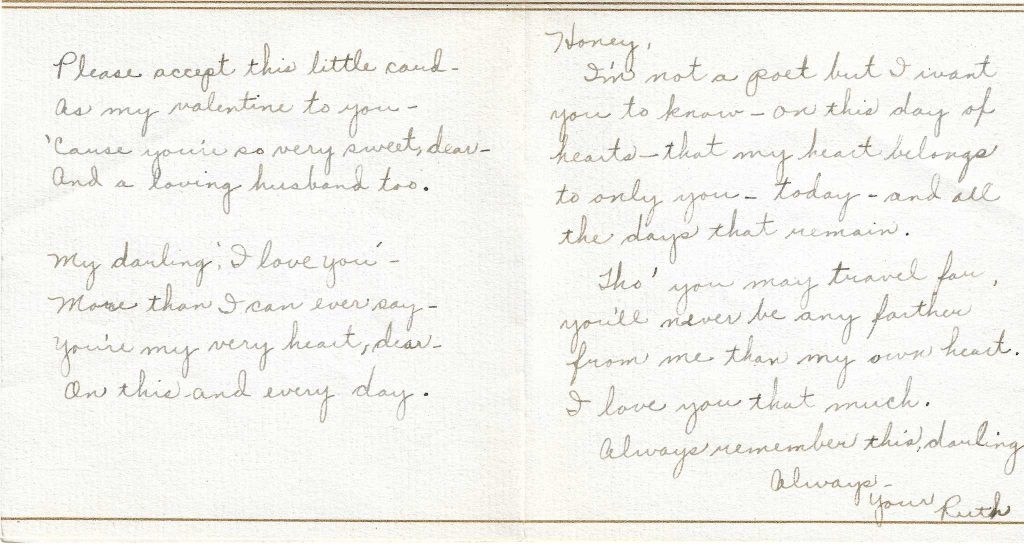 Please accept this little card-
As my valentine to you-
'Cause you're so very sweet, dear-
And a loving husband too.
My darling, 'I love you'-
More than I can ever say-
You're my very heart, dear-
On this and every day.
Honey,
I'm not a poet but I want
you to know - on this day of
hearts - that my heart belongs
to only you - today - and all
the days that remain.
Tho' you may travel far,
you'll never be any farther
from me than my own heart.
I love you that much.
Always remember this, darling
Always-
Your Ruth